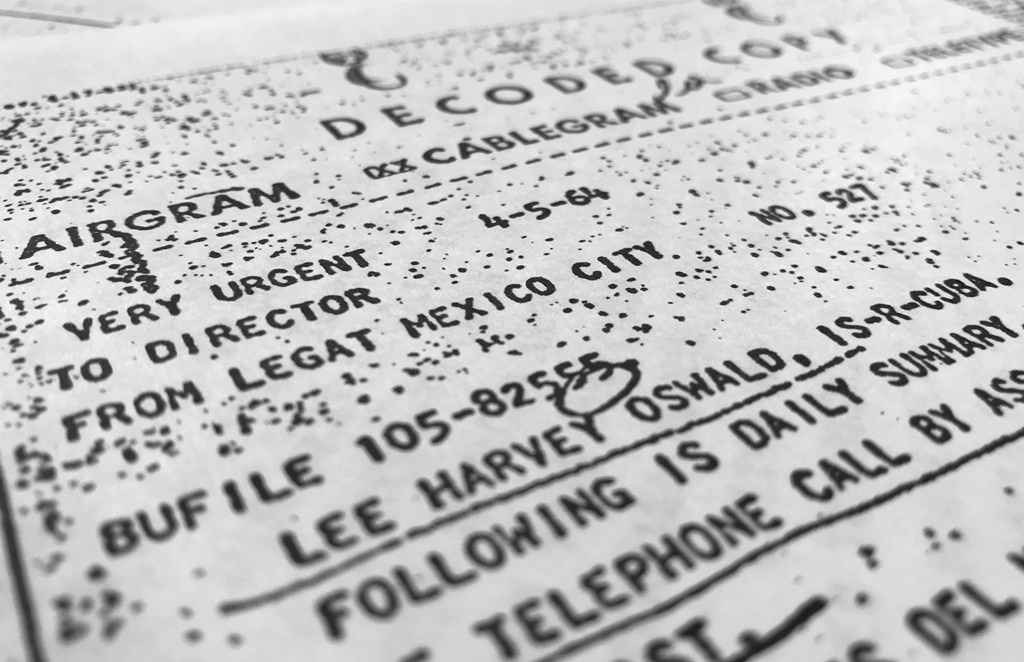 DECODED COPY
AIRGRAM ☒ CABLEGRAM ☐ RADIO ☐ TELETYPE
VERY URGENT 4-5-64 NO. 527
TO DIRECTOR
FROM LEGAT MEXICO CITY
BUFILE 105-82555
LEE HARVEY OSWALD, IS-R-CUBA.
FOLLOWING IS DAILY SUMMARY.
TELEPHONE CALL BY
DEL